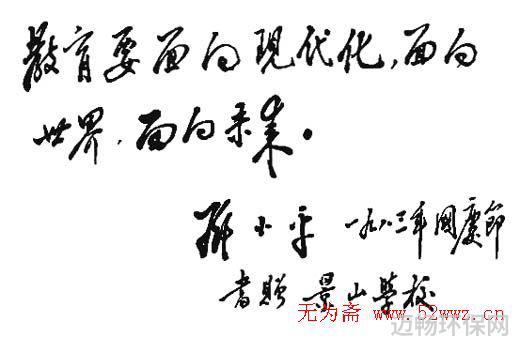 教育要面向现代化，面向
世界，面向未来。
邓小平 一九八三年國慶節
書贈 景山學校
无为斋 www.52wwz.cn
迈畅环保网